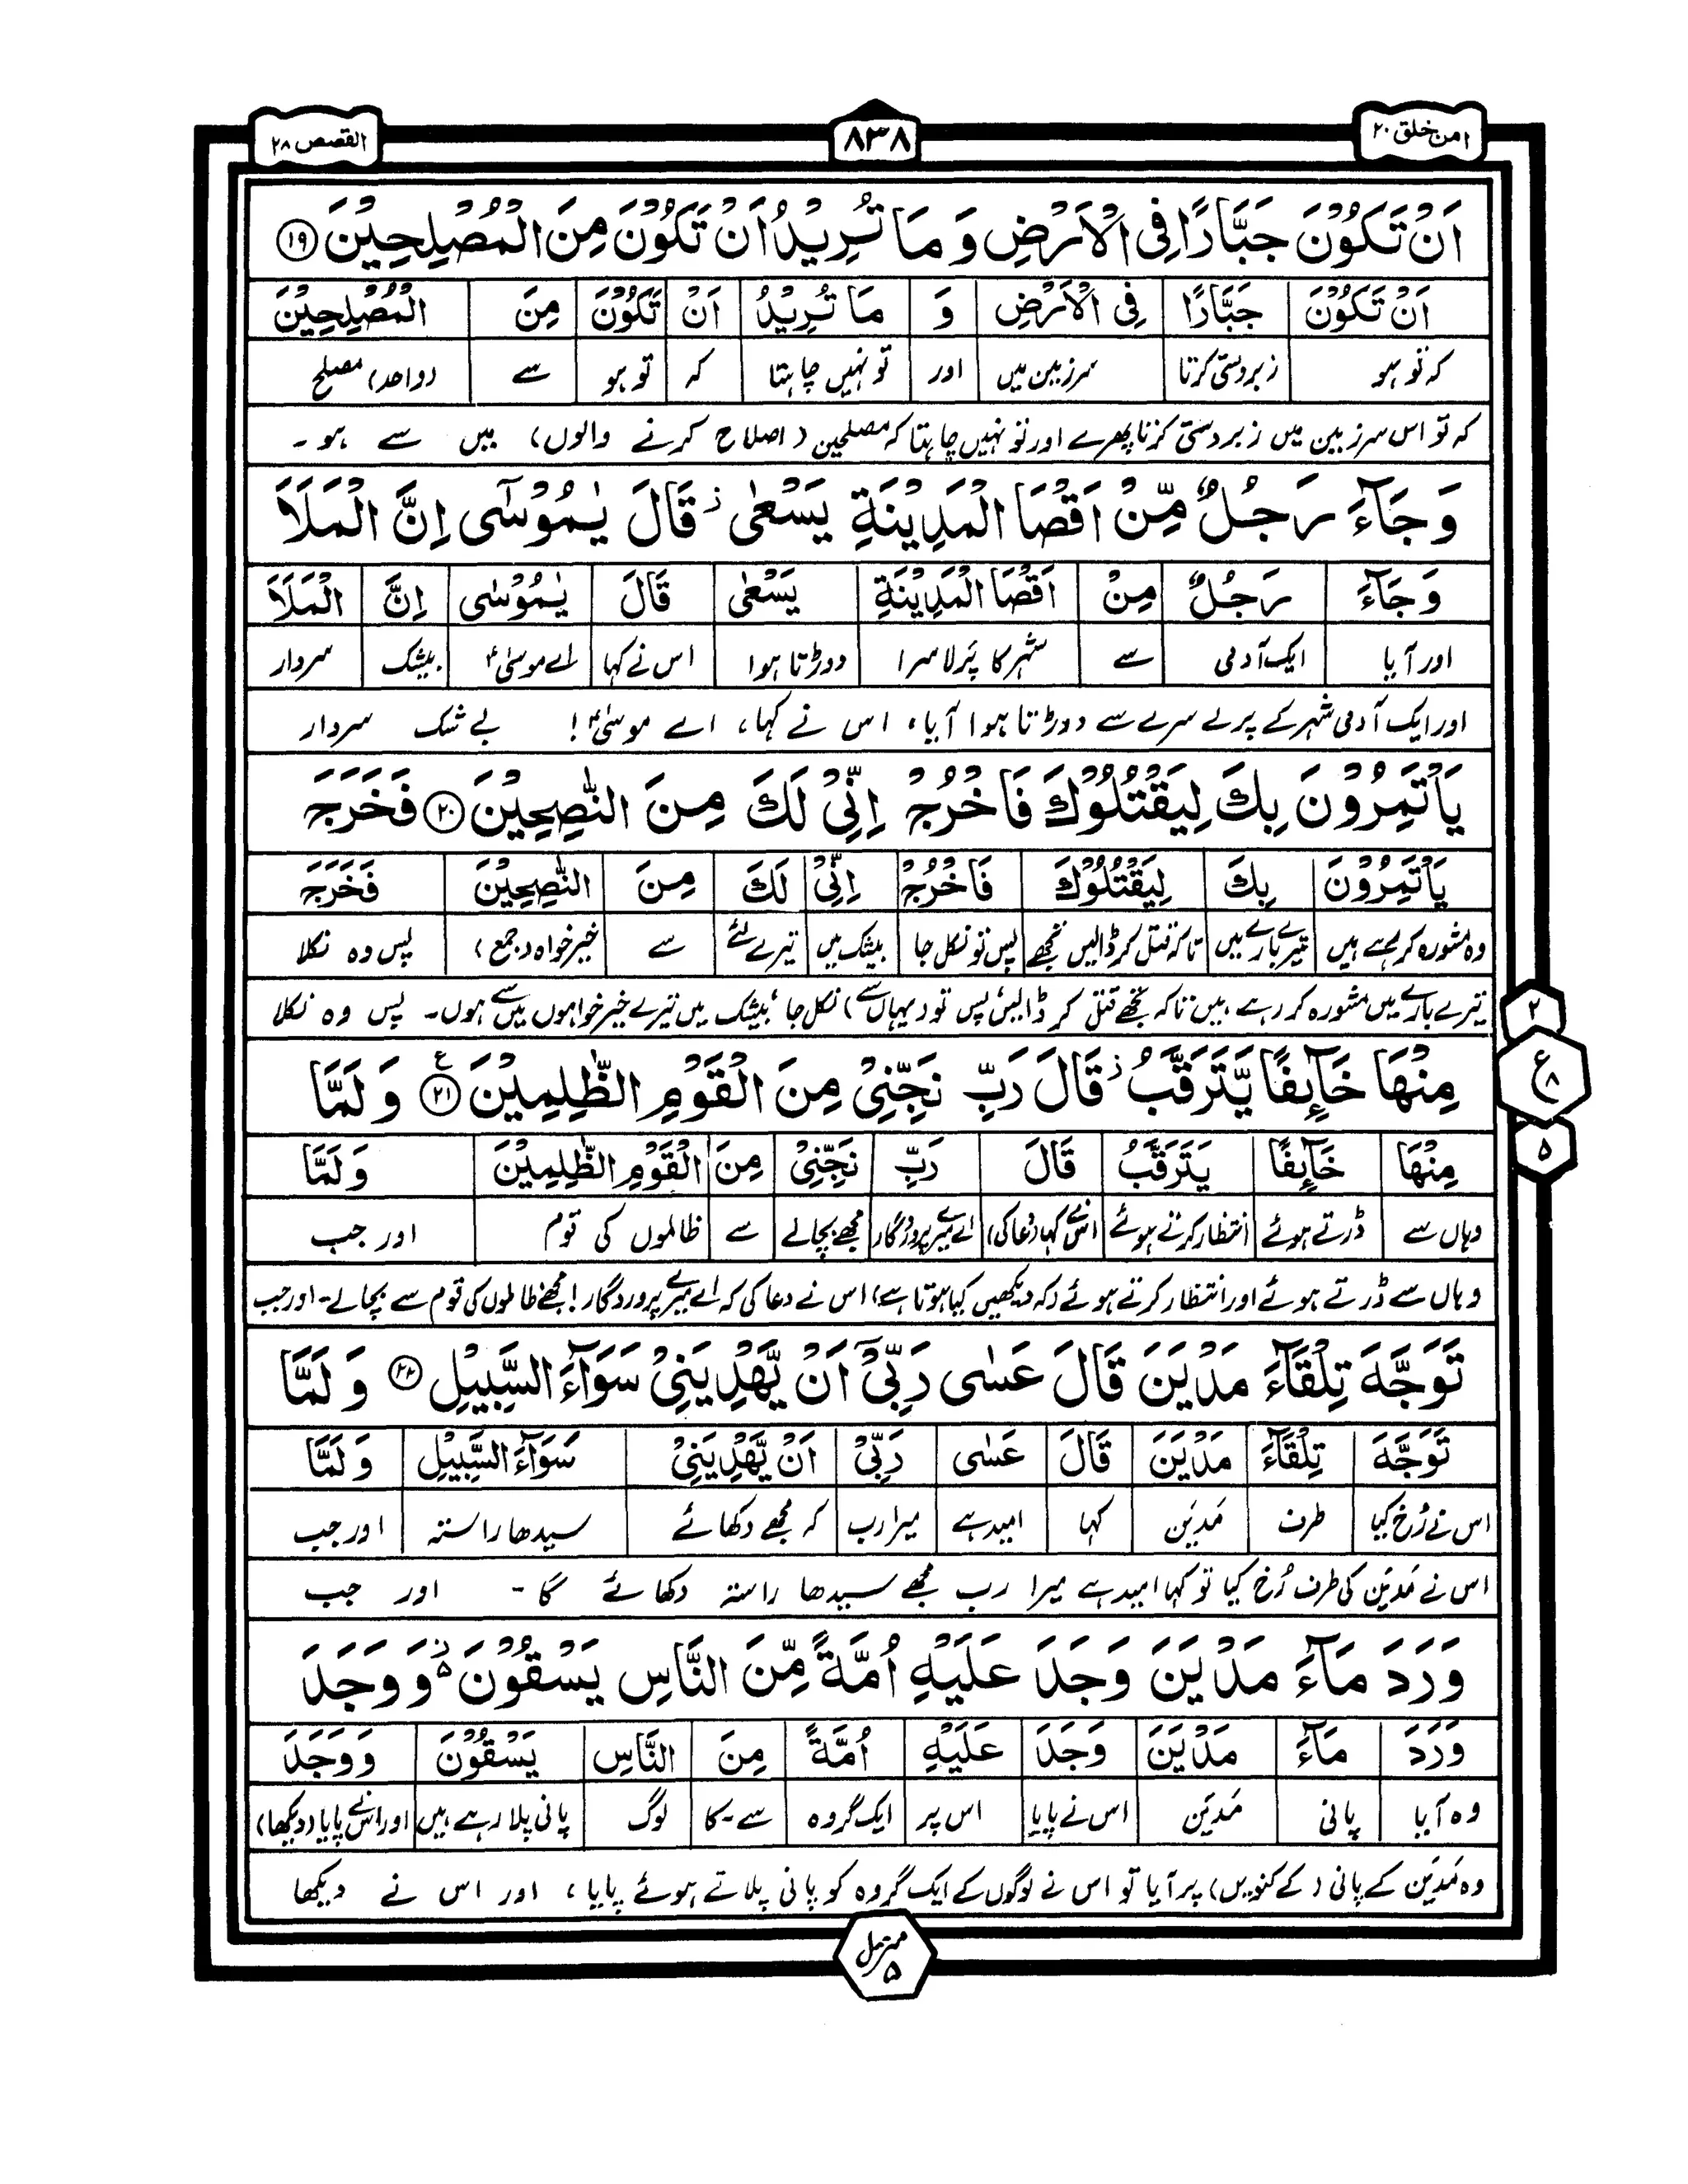 امن خلق ۲۰
۸۳۸
القصص ۲۸
اَنْ تَكُوْنَ جَبَّارًا فِی الْاَرْضِ وَ مَا تُرِیْدُ اَنْ تَكُوْنَ مِنَ الْمُصْلِحِیْنَ ۱۹
اَنْ تَكُوْنَ جَبَّارًا فِی الْاَرْضِ وَ مَا تُرِیْدُ اَنْ تَكُوْنَ مِنَ الْمُصْلِحِیْنَ
کہ تو ہو زبردستی کرتا سرزمین میں اور تو نہیں چاہتا کہ تو ہو سے (واحد) مصلح
کہ تو اس سرزمین میں زبردستی کرتا پھرے اور تو نہیں چاہتا کہ مصلحین (اصلاح کرنے والوں) میں سے ہو۔
وَ جَآءَ رَجُلٌ مِّنْ اَقْصَا الْمَدِیْنَةِ یَسْعٰی ز قَالَ یٰمُوْسٰۤی اِنَّ الْمَلَاَ
وَ جَآءَ رَجُلٌ مِنْ اَقْصَا الْمَدِیْنَةِ یَسْعٰی قَالَ یٰمُوْسٰی اِنَّ الْمَلَاَ
اور آیا ایک آدمی سے شہر کا پَرلا سرا دوڑتا ہوا اس نے کہا اے موسیٰؑ بیشک سردار
اور ایک آدمی شہر کے پرلے سرے سے دوڑتا ہوا آیا، اس نے کہا، اے موسیٰؑ! بے شک سردار
یَاْتَمِرُوْنَ بِكَ لِیَقْتُلُوْكَ فَاخْرُجْ اِنِّیْ لَكَ مِنَ النّٰصِحِیْنَ ۲۰ فَخَرَجَ
یَاْتَمِرُوْنَ بِكَ لِیَقْتُلُوْكَ فَاخْرُجْ اِنِّیْ لَكَ مِنَ النّٰصِحِیْنَ فَخَرَجَ
وہ مشورہ کر رہے ہیں تیرے بارے میں تاکہ قتل کر ڈالیں تجھے پس تو نکل جا بیشک میں تیرے لئے سے خیر خواہ (جمع) پس وہ نکلا
تیرے بارے میں مشورہ کر رہے ہیں تاکہ تجھے قتل کر ڈالیں، پس تو (یہاں سے) نکل جا، بیشک میں تیرے خیر خواہوں میں سے ہوں۔ پس وہ نکلا
۲
مِنْهَا خَآئِفًا یَّتَرَقَّبُ ز قَالَ رَبِّ نَجِّنِیْ مِنَ الْقَوْمِ الظّٰلِمِیْنَ ۲۱ ع وَ لَمَّا
ع ۸
۵
مِنْهَا خَآئِفًا یَتَرَقَّبُ قَالَ رَبِّ نَجِّنِیْ مِنَ الْقَوْمِ الظّٰلِمِیْنَ وَ لَمَّا
وہاں سے ڈرتے ہوئے انتظار کرتے ہوئے اس نے کہا (دعا کی) اے میرے پروردگار مجھے بچالے سے ظالموں کی قوم اور جب
وہاں سے ڈرتے ہوئے اور انتظار کرتے ہوئے (کہ دیکھیں کیا ہوتا ہے) اس نے دعا کی کہ اے میرے پروردگار! مجھے ظالموں کی قوم سے بچالے۔ اور جب
تَوَجَّهَ تِلْقَآءَ مَدْیَنَ قَالَ عَسٰی رَبِّیْۤ اَنْ یَّهْدِیَنِیْ سَوَآءَ السَّبِیْلِ ۲۲ وَ لَمَّا
تَوَجَّهَ تِلْقَآءَ مَدْیَنَ قَالَ عَسٰی رَبِّیْ اَنْ یَّهْدِیَنِیْ سَوَآءَ السَّبِیْلِ وَ لَمَّا
اس نے رُخ کیا طرف مَدیَن کہا امید ہے میرا رب کہ مجھے دکھائے سیدھا راستہ اور جب
اس نے مَدیَن کی طرف رُخ کیا تو کہا امید ہے میرا رب مجھے سیدھا راستہ دکھائے گا۔ اور جب
وَرَدَ مَآءَ مَدْیَنَ وَجَدَ عَلَیْهِ اُمَّةً مِّنَ النَّاسِ یَسْقُوْنَ ۵ وَ وَجَدَ
وَرَدَ مَآءَ مَدْیَنَ وَجَدَ عَلَیْهِ اُمَّةً مِنَ النَّاسِ یَسْقُوْنَ وَوَجَدَ
وہ آیا پانی مَدیَن اس نے پایا اس پر ایک گروہ سے۔کا لوگ پانی پلا رہے ہیں اور اس نے پایا (دیکھا)
وہ مَدیَن کے پانی (کے کنویں) پر آیا تو اس نے لوگوں کے ایک گروہ کو پانی پلاتے ہوئے پایا، اور اس نے دیکھا
منزل ۵